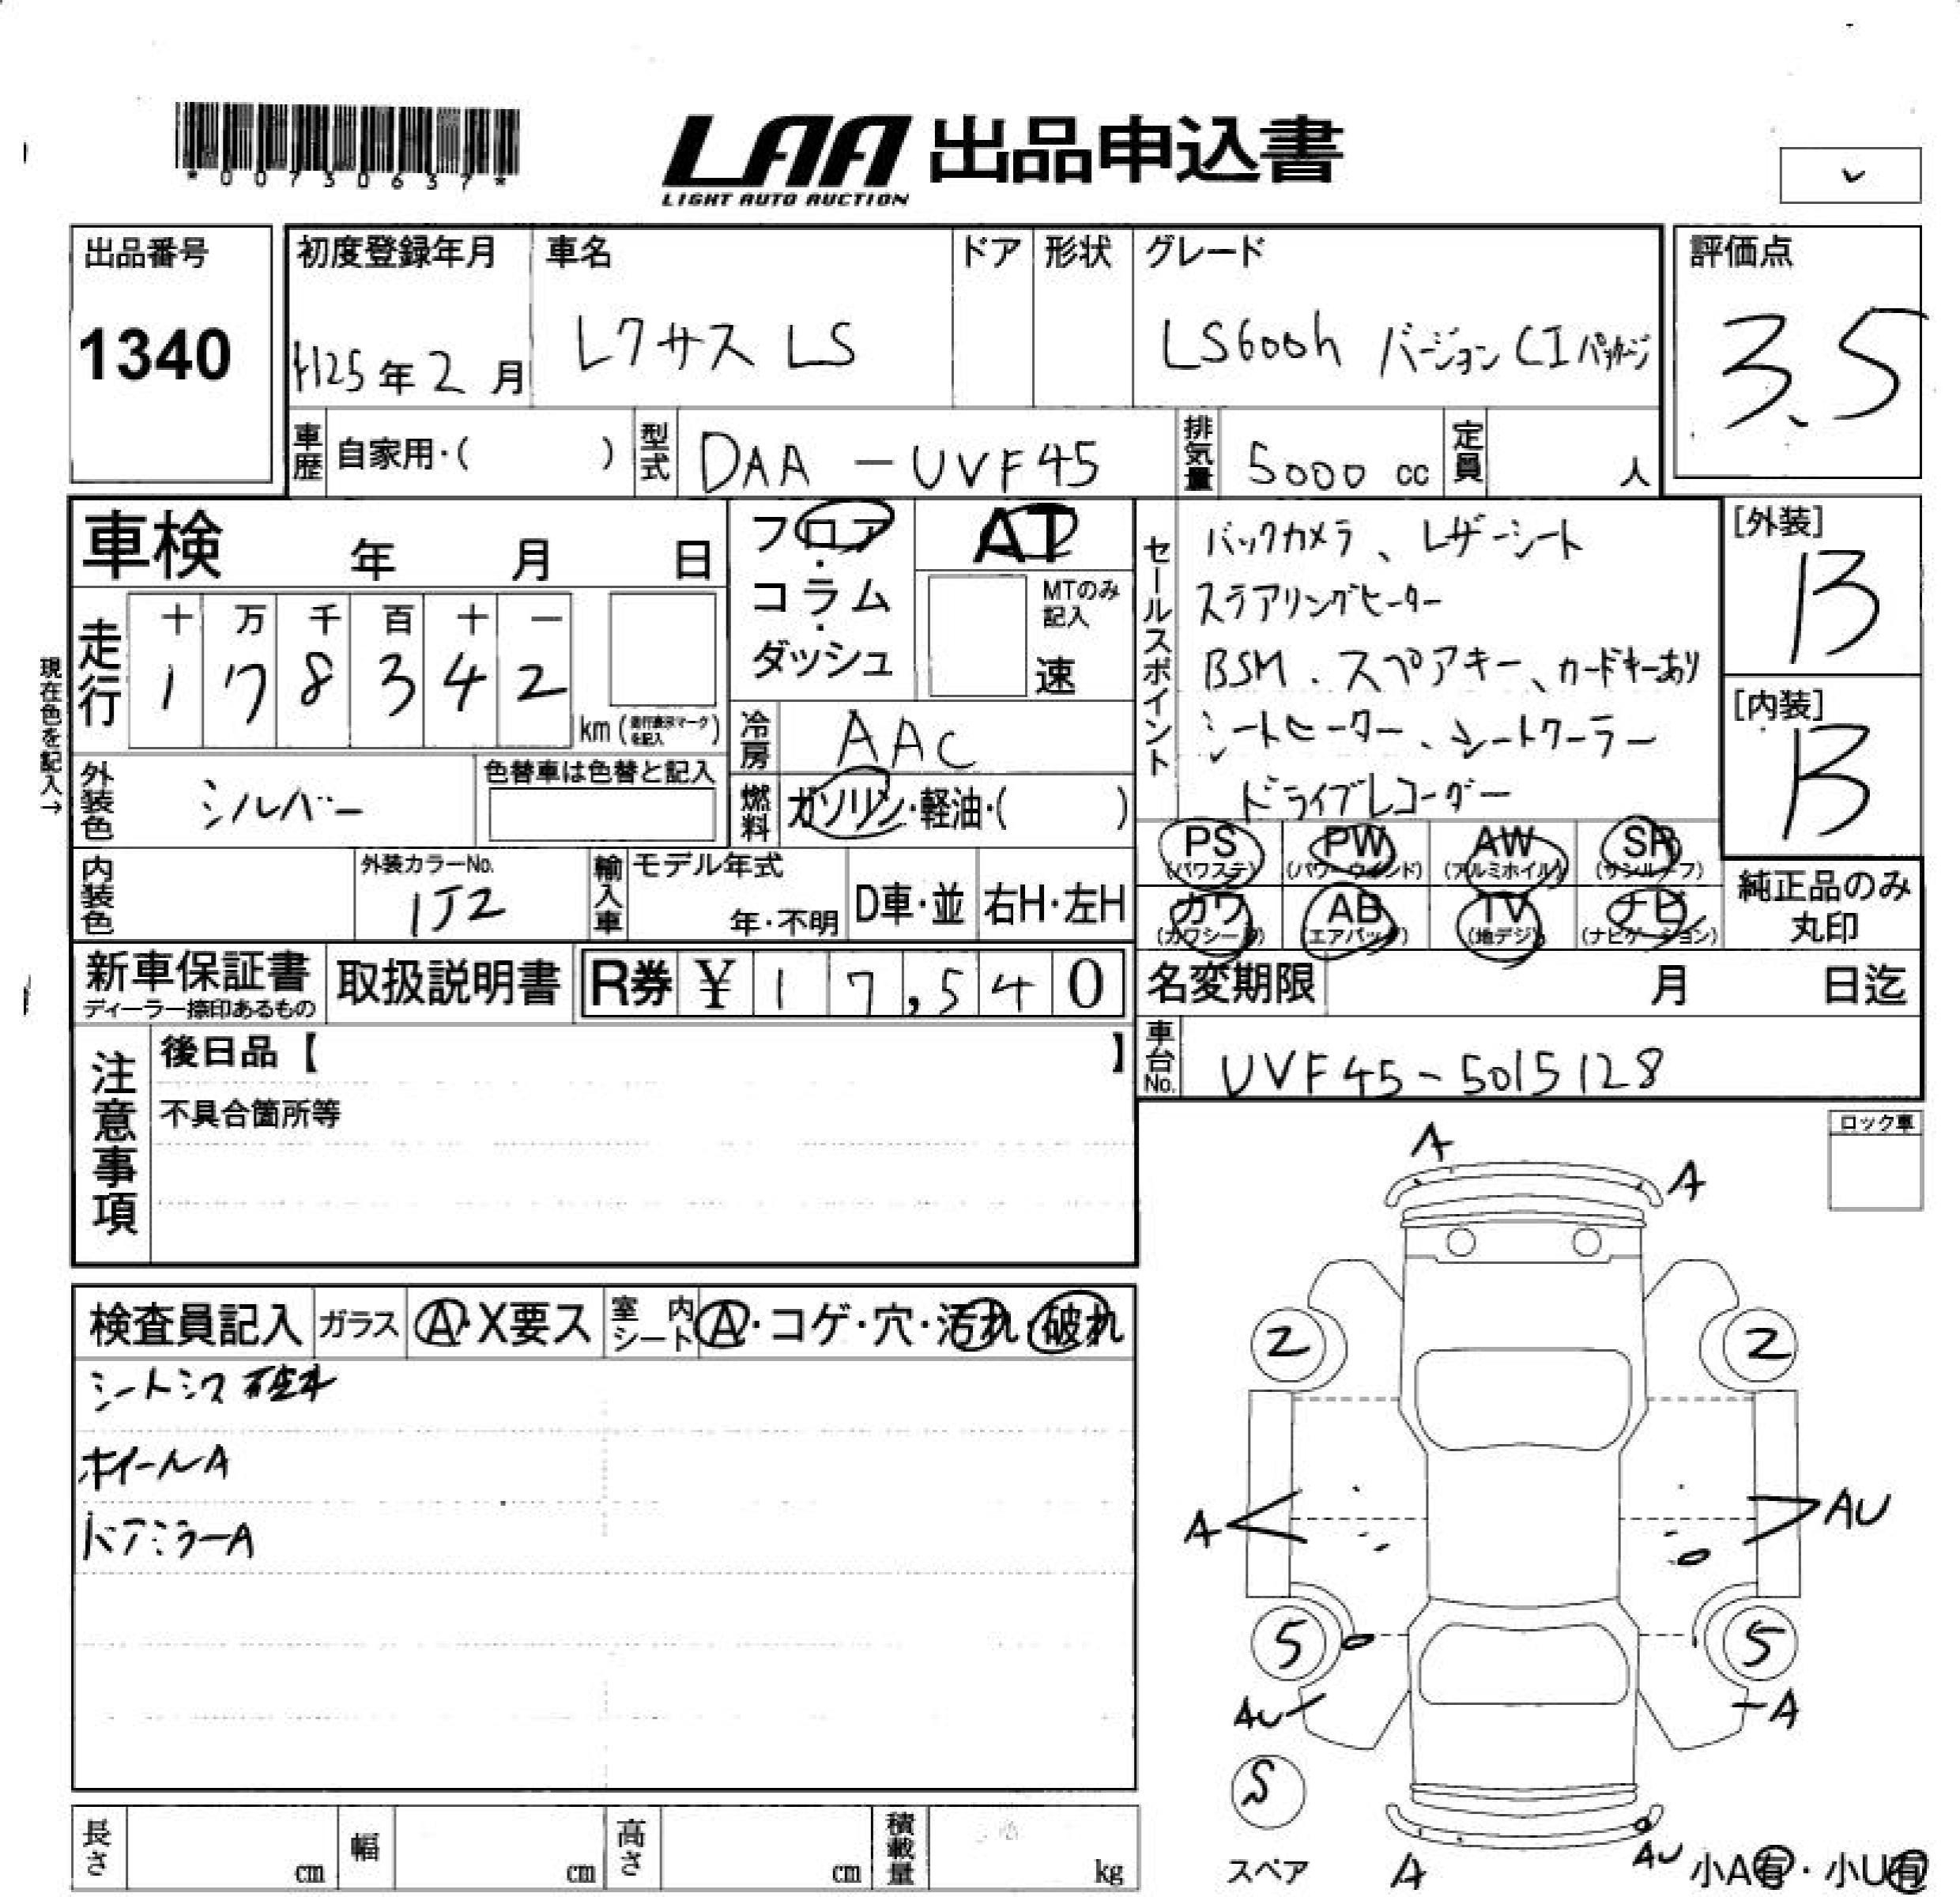 *00730637*
LAA 出品申込書
LIGHT AUTO AUCTION
出品番号
1340
初度登録年月
H25年2月
車名
レクサス LS
ドア
形状
グレード
LS600h バージョンCIパッケージ
評価点
3.5
車歴 自家用・( )
型式 DAA-UVF45
排気量 5000 cc
定員 人
車検 年 月 日
走行
十 万 千 百 十 一
1 7 8 3 4 2
km(走行表示マークを記入)
現在色を記入→
フロア・コラム・ダッシュ
AT
MTのみ記入
速
冷房 AAC
燃料 ガソリン・軽油・( )
セールスポイント
バックカメラ、レザーシート
ステアリングヒーター
BSM、スペアキー、カードキーあり
シートヒーター、シートクーラー
ドライブレコーダー
[外装]
B
[内装]
B
外装色 シルバー
色替車は色替と記入
内装色
外装カラーNo.
1J2
輸入車
モデル年式
年・不明
D車・並
右H・左H
PS (パワステ)
PW (パワーウインド)
AW (アルミホイル)
SR (サンルーフ)
カワ (カワシート)
AB (エアバッグ)
TV (地デジ)
ナビ (ナビゲーション)
純正品のみ丸印
新車保証書
ディーラー捺印あるもの
取扱説明書
R券 ¥ 1 7,5 4 0
名変期限 月 日迄
車台No. UVF45-5015128
注意事項
後日品【 】
不具合箇所等
ロック車
検査員記入
ガラス A・X要ス
室内シート A・コゲ・穴・汚れ・破れ
シートシワ破れ
ホイールA
ドアミラーA
A
A
2
2
A
AU
5
5
AU
A
S
スペア
A
AU
小A有・小U有
長さ cm
幅 cm
高さ cm
積載量 kg